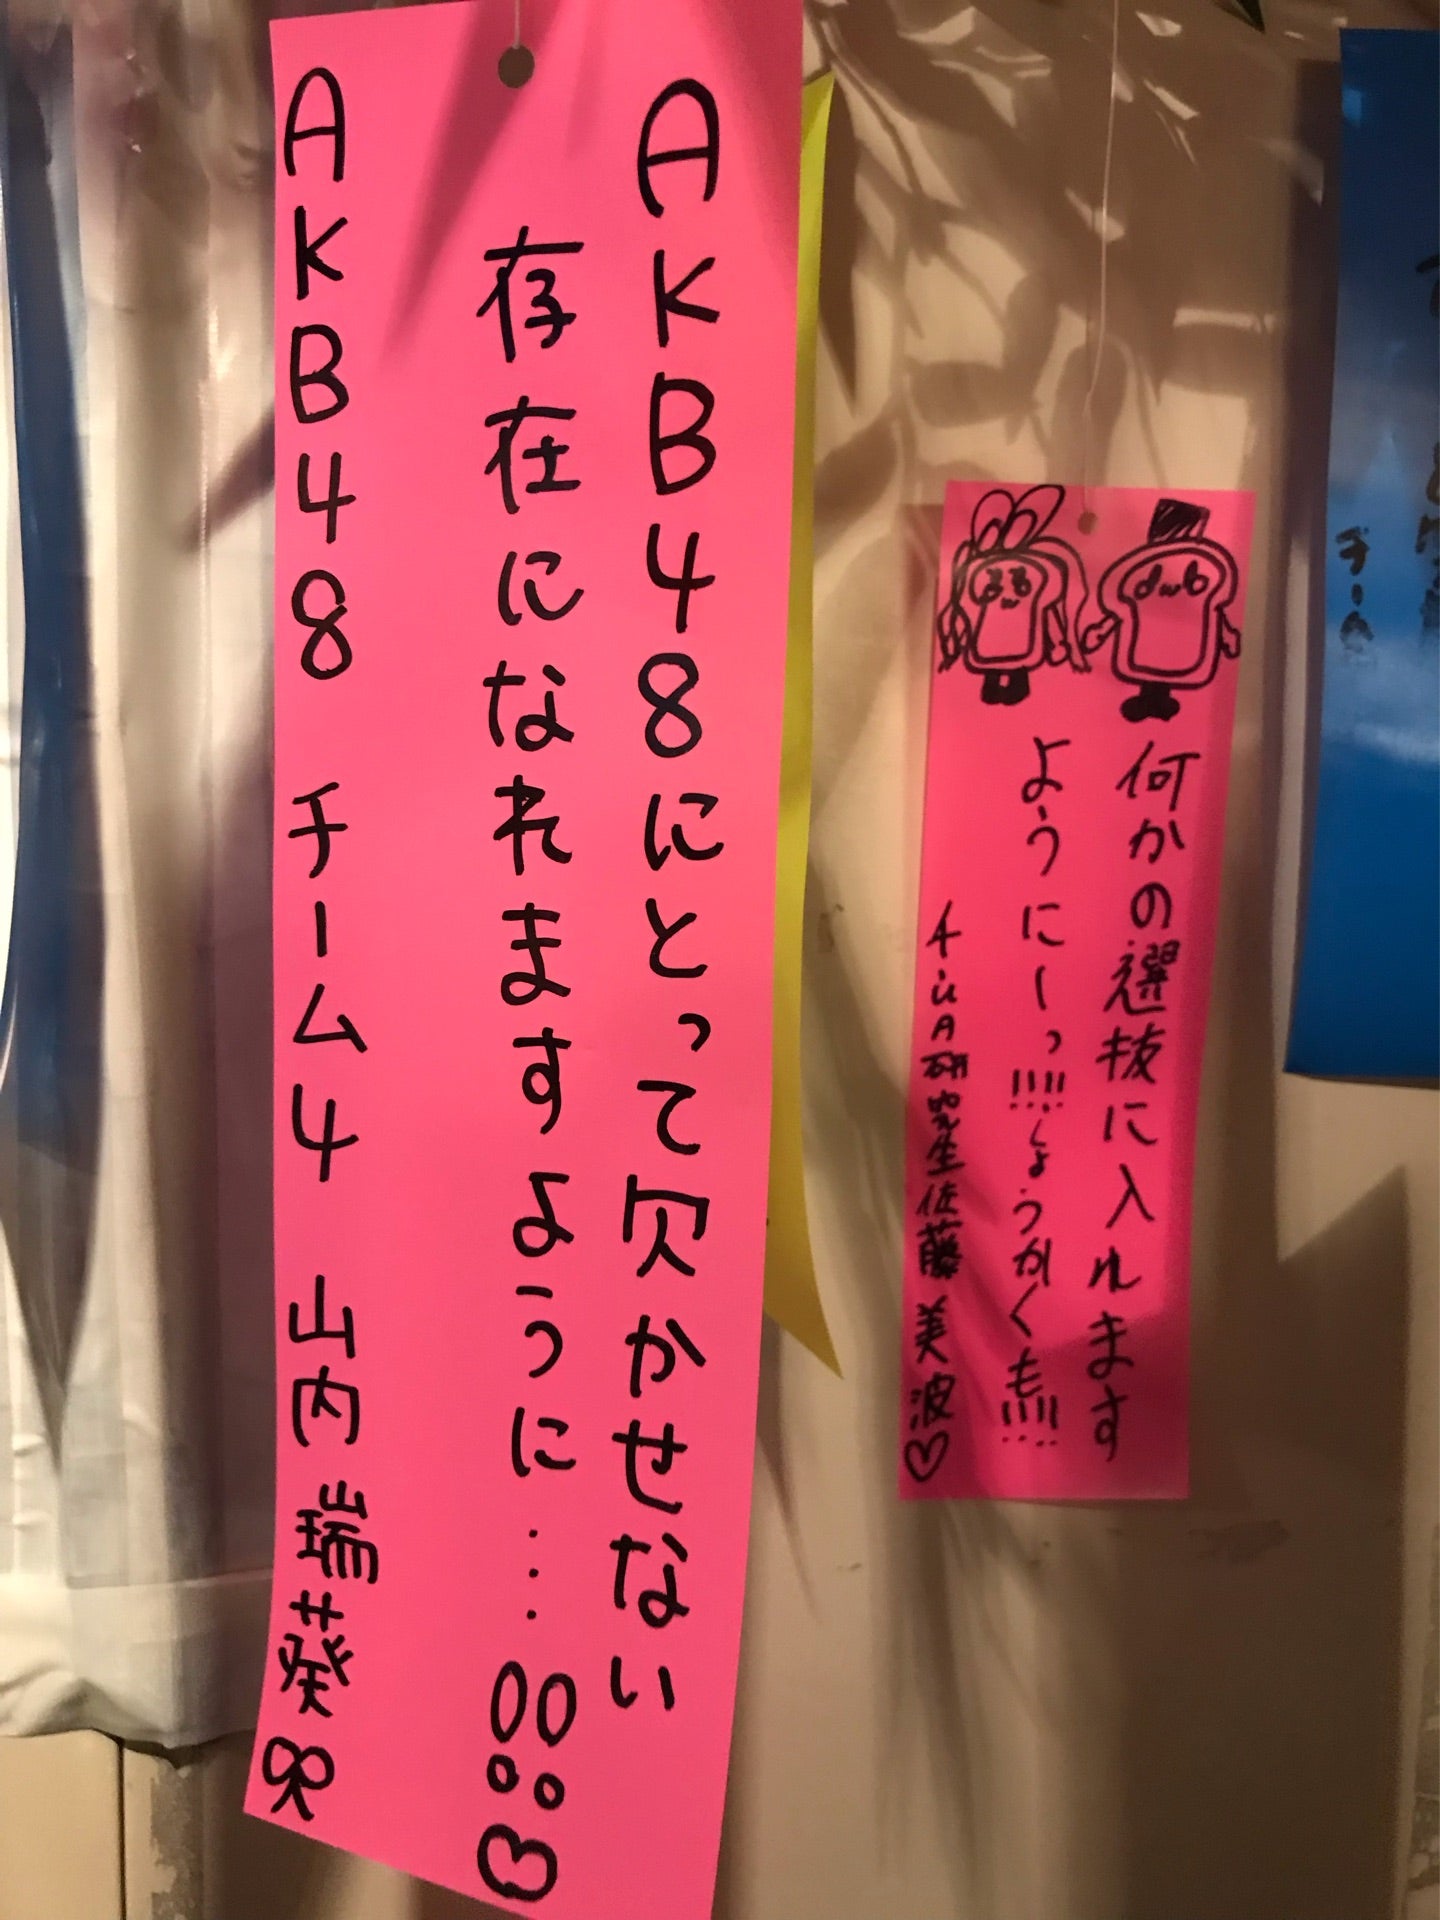 AKB48にとって欠かせない
存在になれますように…!!♡
AKB48 チーム4 山内瑞葵
何かの選抜に入れます
ようにーっ!!!!しょうかくも!!!!
チームA研究生佐藤美波♡
チーム